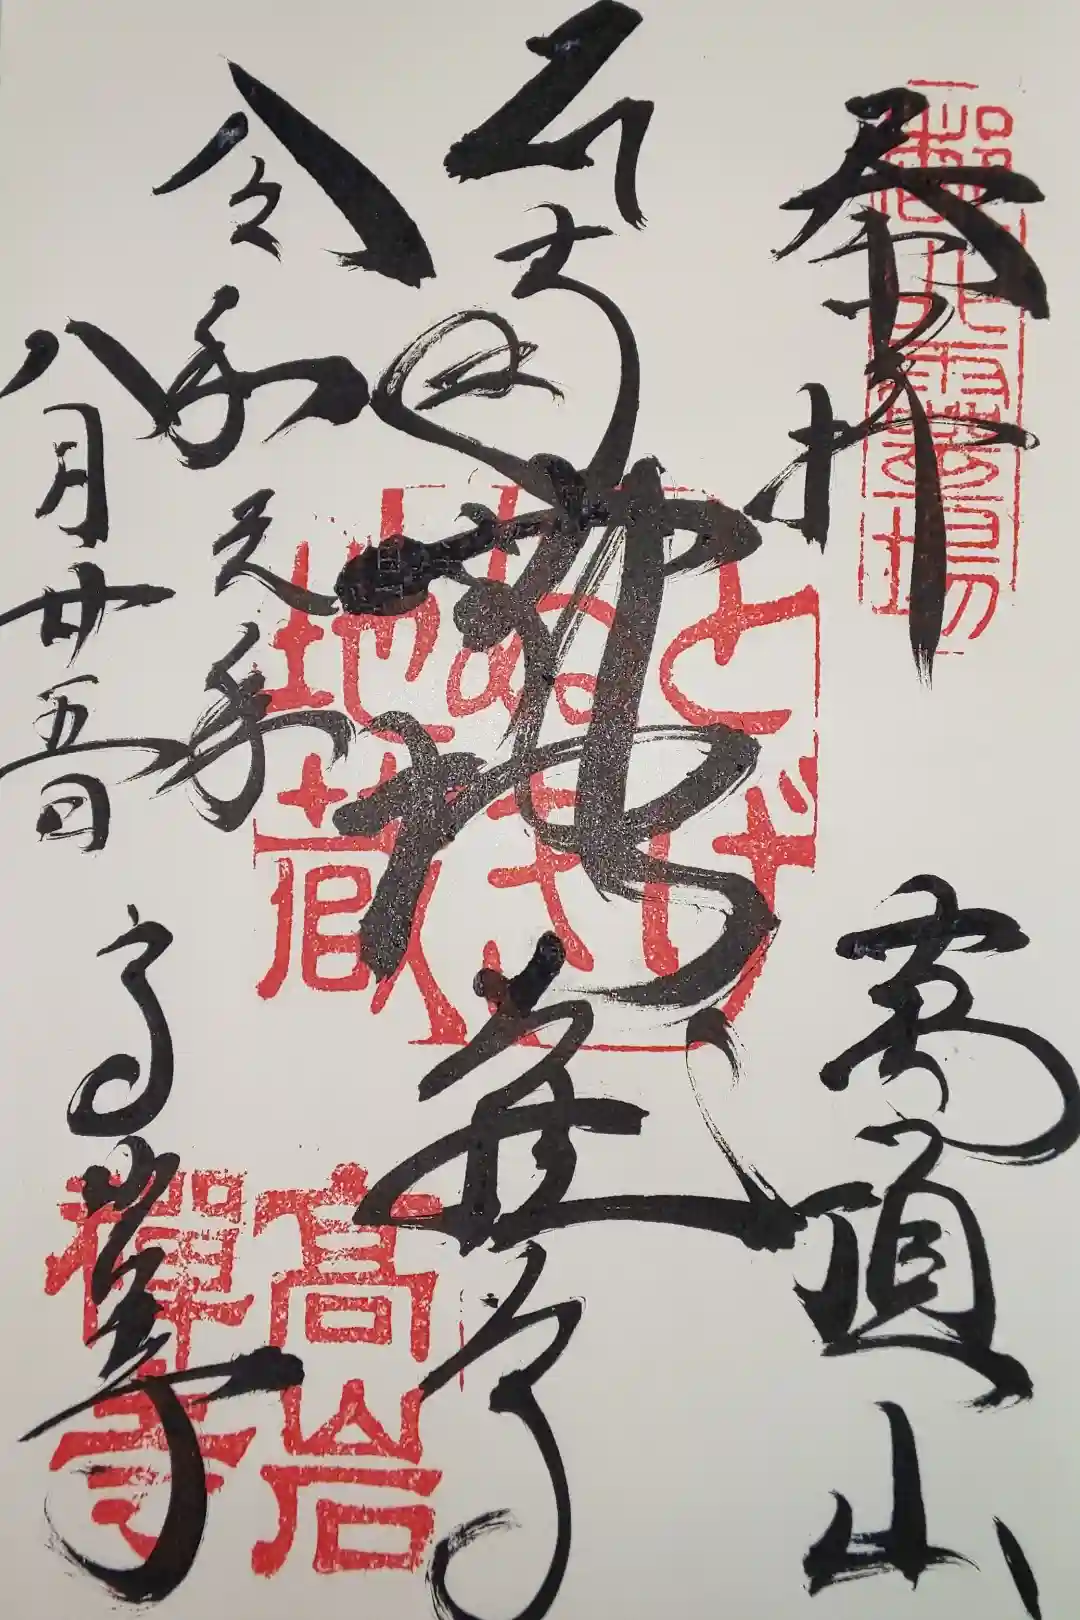 奉拝 萬頂山
地蔵尊
令和元年
八月廿五日 高岩寺
霊場
とげぬき
地蔵
高岩
禅寺